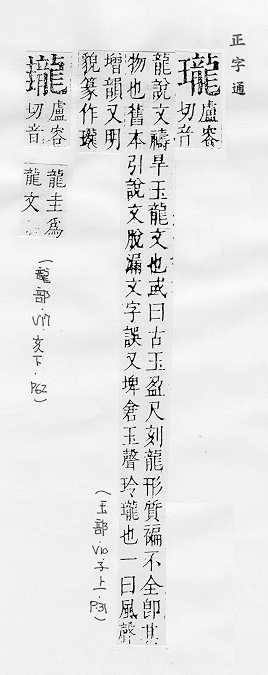 正字通
瓏盧容切音
龍說文禱旱玉龍文也或曰古玉盈尺刻龍形質褊不全卽其
物也舊本引說文脫漏文字誤又埤倉玉聲玲瓏也一曰風聲
增韻又明貌篆作瓏
(玉部.V10.子上.P31)
盧容切音
龍圭為龍文
(龍部.V17亥下.P62)